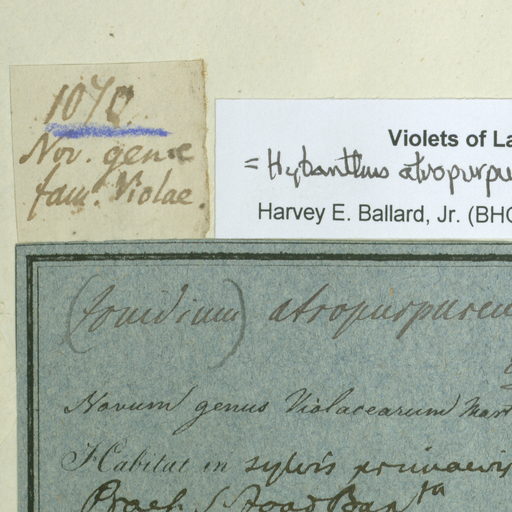 1070
Nov. genus
fam. Violae.
Violets of La
= Hybanthus atropurpu
Harvey E. Ballard, Jr. (BHO
(Ionidium) atropurpureu
Novum genus Violacearum Mart
Habitat in sylvis primaevis
Praef. S. Joao Bapta